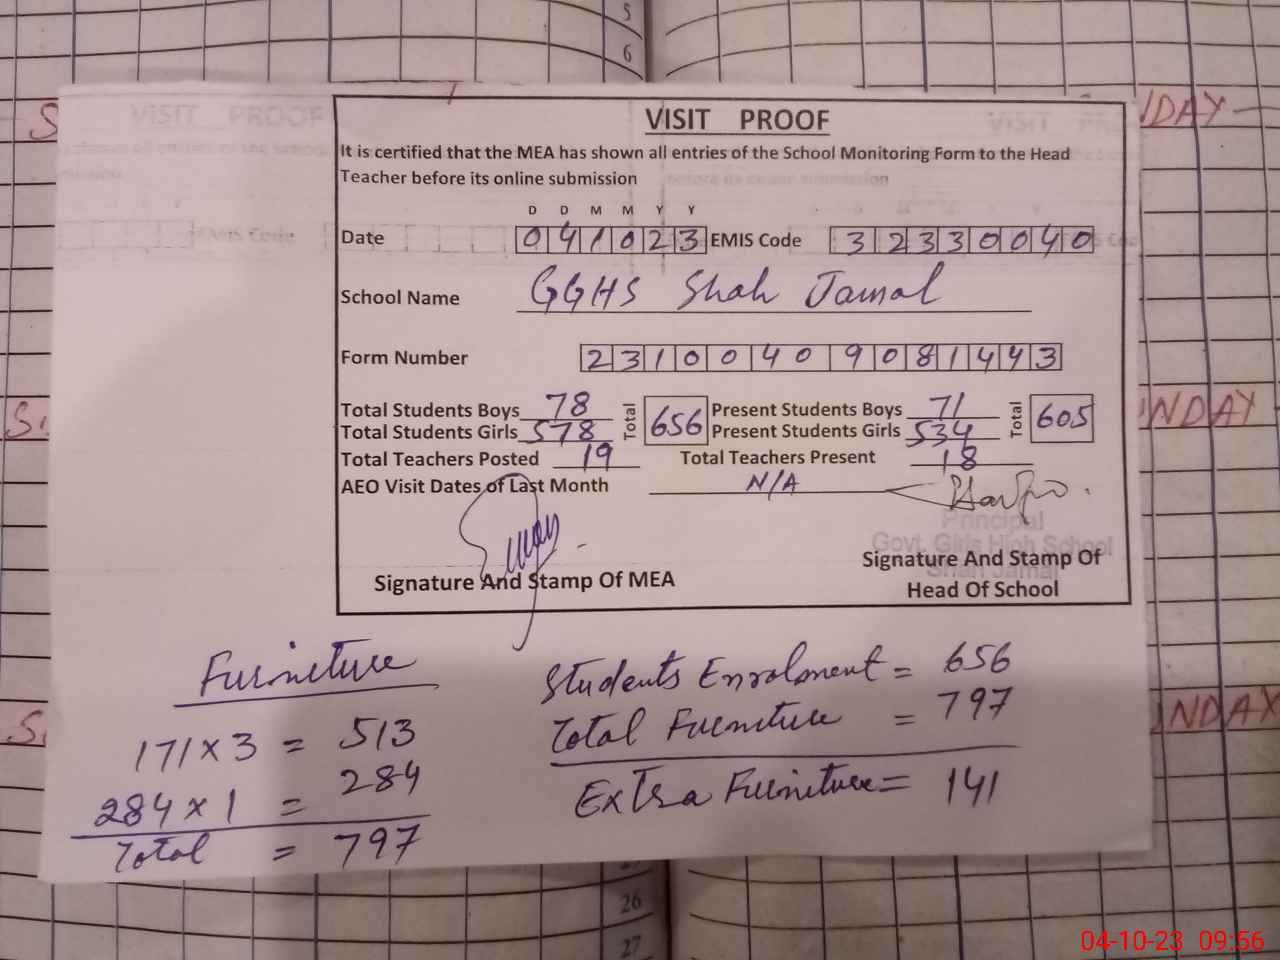 5
6
VISIT PROOF
It is certified that the MEA has shown all entries of the School Monitoring Form to the Head
Teacher before its online submission
D D M M Y Y
Date 041023 EMIS Code 32330040
School Name GGHS Shah Jamal
Form Number 23100409081443
Total Students Boys 78 Total 656 Present Students Boys 71 Total 605
Total Students Girls 578 Present Students Girls 534
Total Teachers Posted 19 Total Teachers Present 18
AEO Visit Dates of Last Month N/A
Principal
Govt. Girls High School
Shah Jamal
Signature And Stamp Of MEA Signature And Stamp Of
Head Of School
Furniture
171 x 3 = 513
284 x 1 = 284
Total = 797
Students Enrolment = 656
Total Furniture = 797
Extra Furniture = 141
26
27
NDAY
NDAY
NDAY
04-10-23 09:56